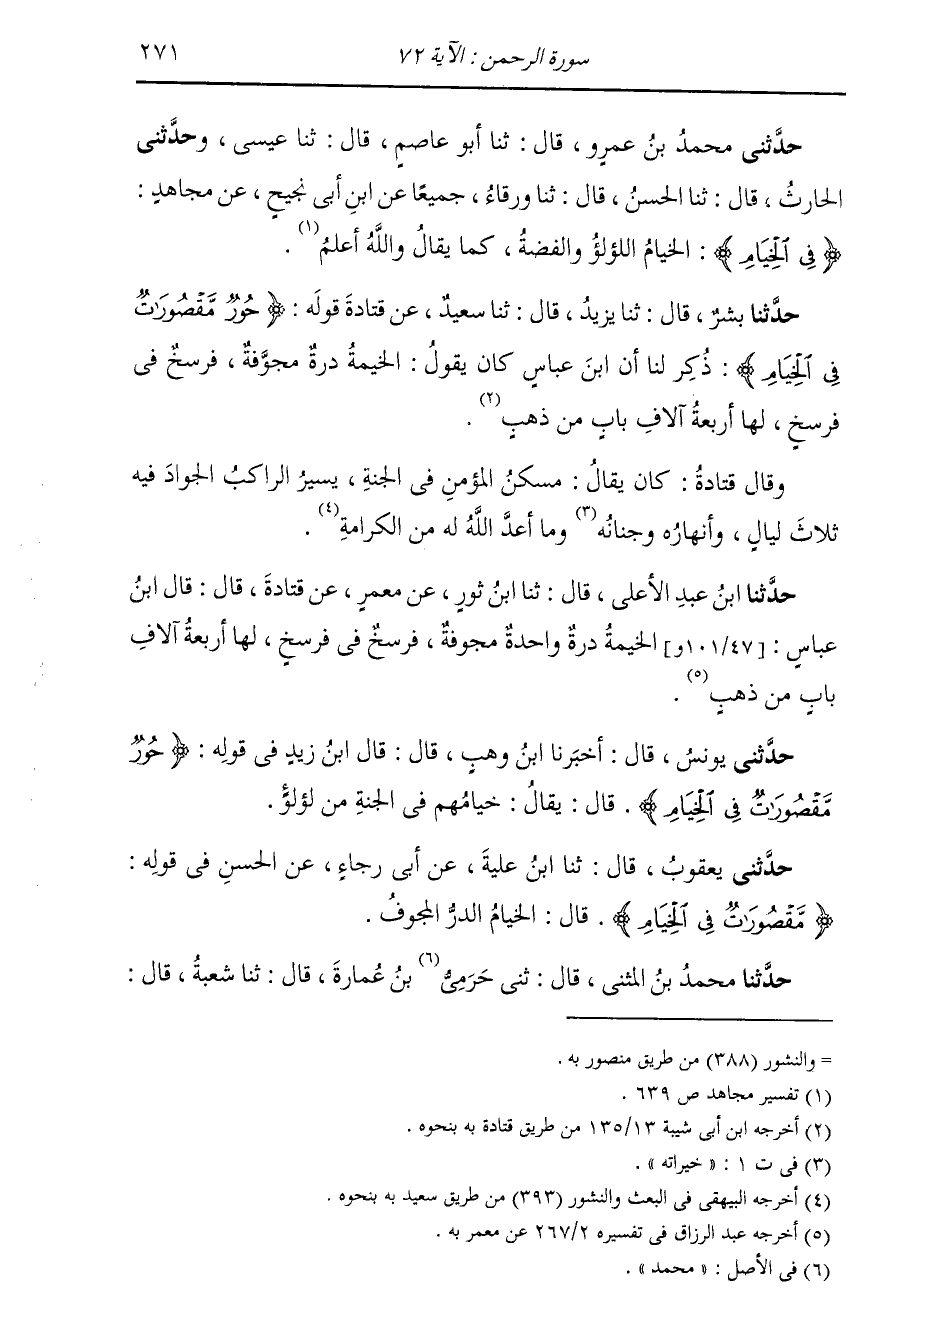 سورة الرحمن : الآية ٧٢ ٢٧١
حدَّثنى محمدُ بنُ عمرٍو ، قال : ثنا أبو عاصمٍ ، قال : ثنا عيسى ، وحدَّثنى
الحارثُ ، قال : ثنا الحسنُ ، قال : ثنا ورقاءُ ، جميعًا عن ابنِ أبى نجيحٍ ، عن مجاهدٍ :
﴿ فِى ٱلْخِيَامِ ﴾ : الخيامُ اللؤلؤُ والفضةُ ، كما يقالُ واللَّهُ أعلمُ(١) .
حدَّثنا بشرٌ ، قال : ثنا يزيدُ ، قال : ثنا سعيدٌ ، عن قتادةَ قولَه : ﴿ حُورٌ مَّقْصُورَٰتٌ
فِى ٱلْخِيَامِ ﴾ : ذُكِر لنا أن ابنَ عباسٍ كان يقولُ : الخيمةُ درةٌ مجوَّفةٌ ، فرسخٌ فى
فرسخٍ ، لها أربعةُ آلافِ بابٍ من ذهبٍ(٢) .
وقال قتادةُ : كان يقالُ : مسكنُ المؤمنِ فى الجنةِ ، يسيرُ الراكبُ الجوادَ فيه
ثلاثَ ليالٍ ، وأنهارُه وجنانُه(٣) وما أعدَّ اللَّهُ له من الكرامةِ(٤) .
حدَّثنا ابنُ عبدِ الأعلى ، قال : ثنا ابنُ ثورٍ ، عن معمرٍ ، عن قتادةَ ، قال : قال ابنُ
عباسٍ : [١٠١/٤٧و] الخيمةُ درةٌ واحدةٌ مجوفةٌ ، فرسخٌ فى فرسخٍ ، لها أربعةُ آلافِ
بابٍ من ذهبٍ(٥) .
حدَّثنى يونسُ ، قال : أخبَرنا ابنُ وهبٍ ، قال : قال ابنُ زيدٍ فى قولِه : ﴿ حُورٌ
مَّقْصُورَٰتٌ فِى ٱلْخِيَامِ ﴾ . قال : يقالُ : خيامُهم فى الجنةِ من لؤلؤٍ .
حدَّثنى يعقوبُ ، قال : ثنا ابنُ عليةَ ، عن أبى رجاءٍ ، عن الحسنِ فى قولِه :
﴿ مَّقْصُورَٰتٌ فِى ٱلْخِيَامِ ﴾ . قال : الخيامُ الدرُّ المجوفُ .
حدَّثنا محمدُ بنُ المثنى ، قال : ثنى حَرَمِىُّ(٦) بنُ عُمارةَ ، قال : ثنا شعبةُ ، قال :
= والنشور (٣٨٨) من طريق منصور به .
(١) تفسير مجاهد ص ٦٣٩ .
(٢) أخرجه ابن أبى شيبة ١٣٥/١٣ من طريق قتادة به بنحوه .
(٣) فى ت ١ : « خيراته » .
(٤) أخرجه البيهقى فى البعث والنشور (٣٩٣) من طريق سعيد به بنحوه .
(٥) أخرجه عبد الرزاق فى تفسيره ٢٦٧/٢ عن معمر به .
(٦) فى الأصل : « محمد » .